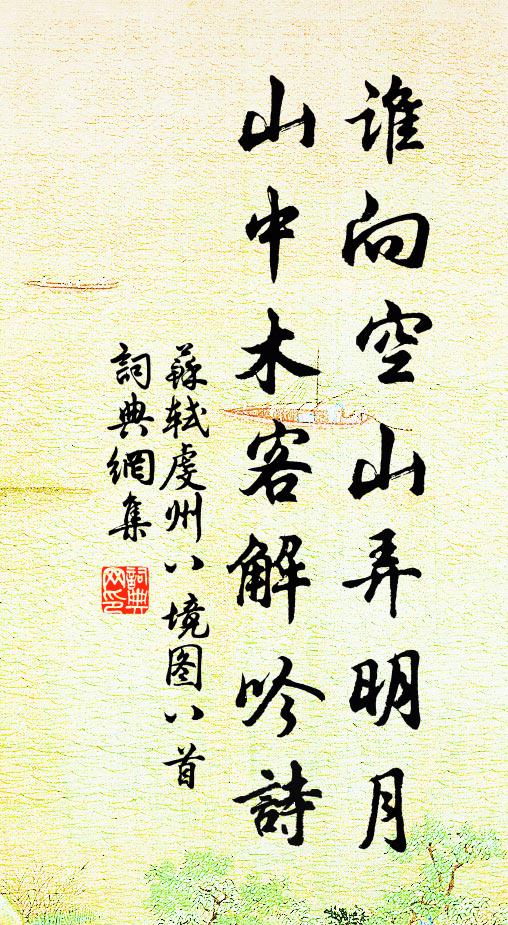 谁向空山弄明月
山中木客解吟詩
蘇轼虔州八境图八首
詞典網集
詞典网印